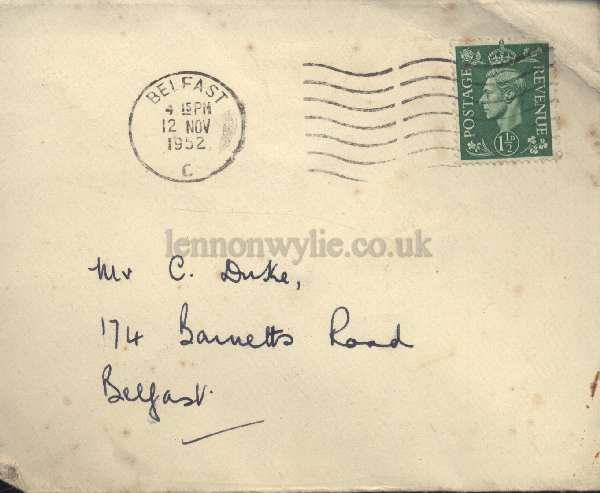 BELFAST
4 15 PM
12 NOV
1952
C
POSTAGE
REVENUE
1½D
lennonwylie.co.uk
Mr C. Duke,
174 Barnetts Road
Belfast.